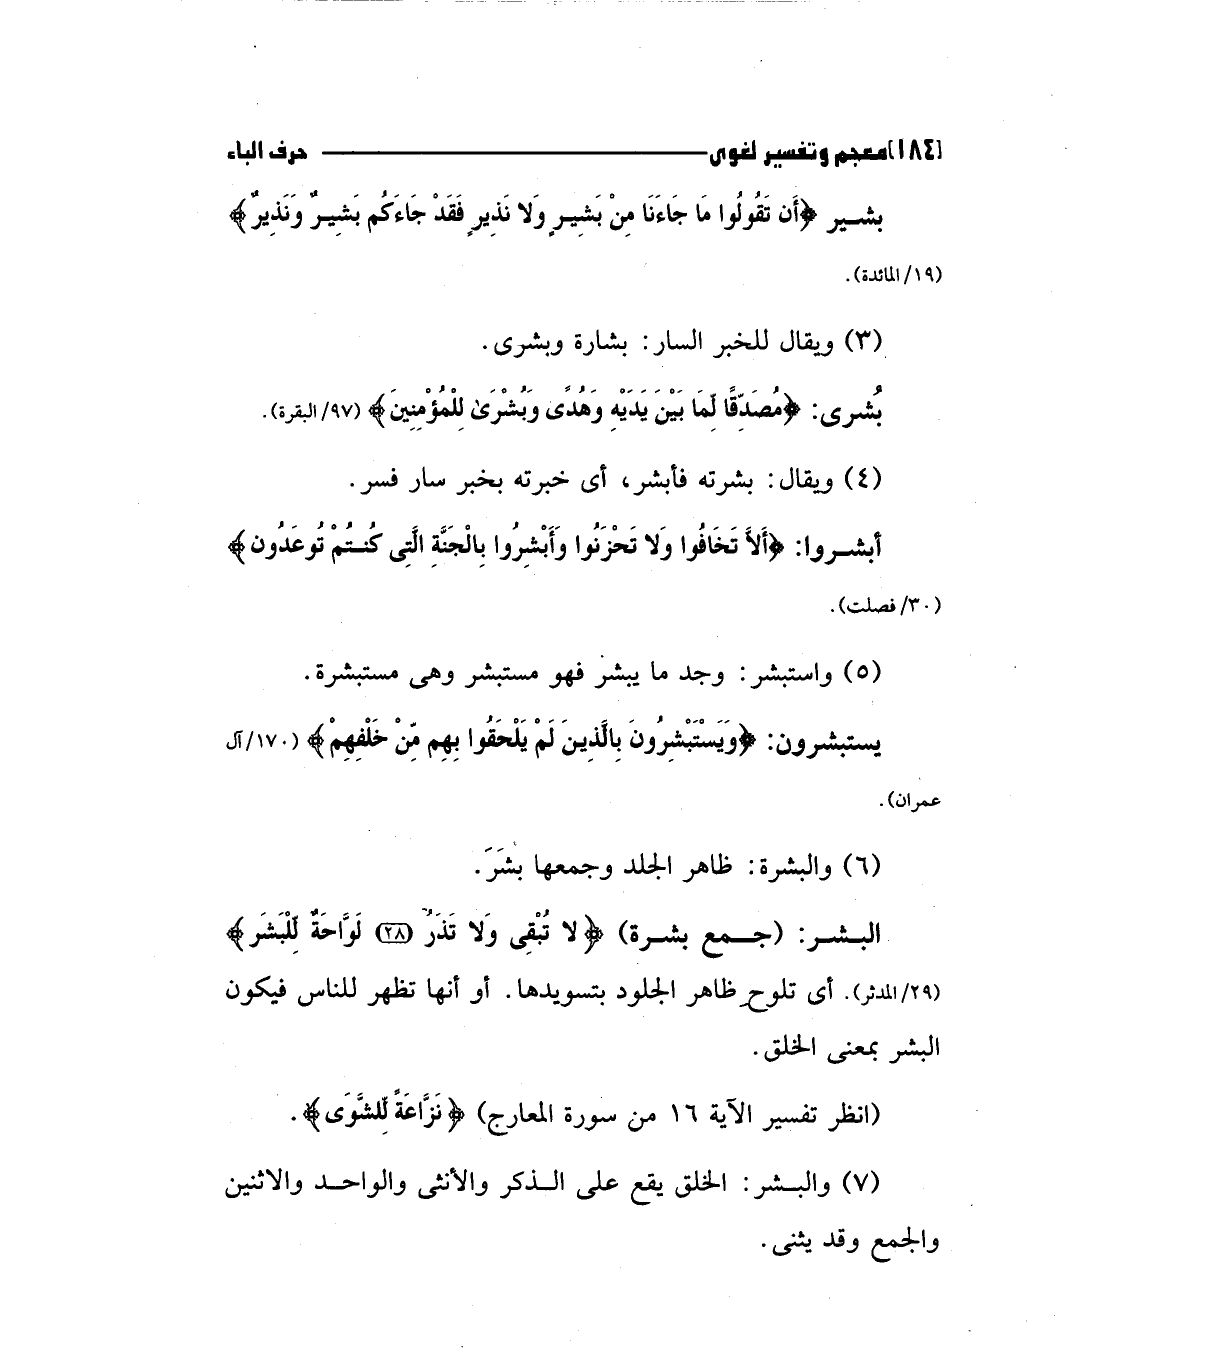 [١٨٤] معجم وتفسير لغوى ـــــــــــــ حرف الباء
بشير ﴿أَن تَقُولُوا مَا جَاءَنَا مِنْ بَشِيرٍ وَلا نَذِيرٍ فَقَدْ جَاءَكُم بَشِيرٌ وَنَذِيرٌ﴾
(١٩/ المائدة).
(٣) ويقال للخبر السار: بشارة وبشرى.
بُشرى: ﴿مُصَدِّقًا لِّمَا بَيْنَ يَدَيْهِ وَهُدًى وَبُشْرَىٰ لِلْمُؤْمِنِينَ﴾ (٩٧/ البقرة).
(٤) ويقال: بشرته فأبشر، أى خبرته بخبر سار فسر.
أبشروا: ﴿أَلاَّ تَخَافُوا وَلا تَحْزَنُوا وَأَبْشِرُوا بِالْجَنَّةِ الَّتِى كُنتُمْ تُوعَدُونَ﴾
(٣٠/ فصلت).
(٥) واستبشر: وجد ما يبشر فهو مستبشر وهى مستبشرة.
يستبشرون: ﴿وَيَسْتَبْشِرُونَ بِالَّذِينَ لَمْ يَلْحَقُوا بِهِم مِّنْ خَلْفِهِمْ﴾ (١٧٠/ آل
عمران).
(٦) والبشرة: ظاهر الجلد وجمعها بشَرَ.
البشر: (جمع بشرة) ﴿لا تُبْقِى وَلا تَذَرُ (٢٨) لَوَّاحَةٌ لِّلْبَشَرِ﴾
(٢٩/ المدثر). أى تلوح ظاهر الجلود بتسويدها. أو أنها تظهر للناس فيكون
البشر بمعنى الخلق.
(انظر تفسير الآية ١٦ من سورة المعارج) ﴿نَزَّاعَةً لِّلشَّوَى﴾.
(٧) والبشر: الخلق يقع على الذكر والأنثى والواحد والاثنين
والجمع وقد يثنى.